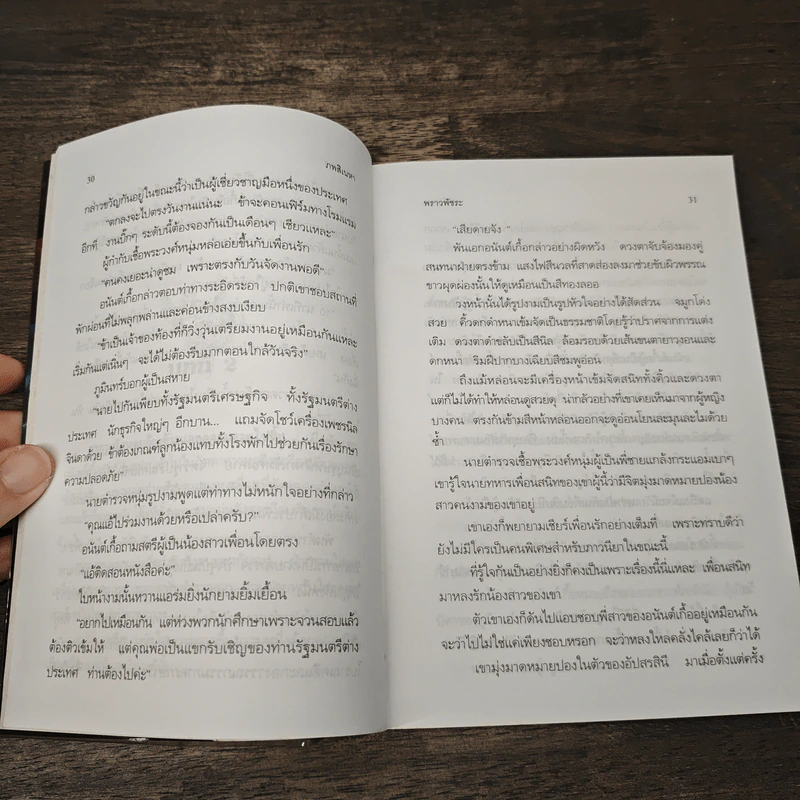 30
ภพสิเนหา
กล่าวขวัญกันอยู่ในขณะนี้ว่าเป็นผู้เชี่ยวชาญมือหนึ่งของประเทศ
“ตกลงจะไปตรงวันงานแน่นะ ข้าจะคอนเฟิร์มทางโรงแรม
อีกที งานบิ๊กๆ ระดับนี้ต้องจองกันเป็นเดือนๆ เชียวแหละ”
ผู้กำกับเชื้อพระวงศ์หนุ่มหล่อเอ่ยขึ้นกับเพื่อนรัก
“คนคงเยอะน่าดูชม เพราะตรงกับวันจัดงานพอดี”
อนันต์เกื้อกล่าวตอบท่าทางระอิดระอา ปกติเขาชอบสถานที่
พักผ่อนที่ไม่พลุกพล่านและค่อนข้างสงบเงียบ
“ข้าเป็นเจ้าของท้องที่ก็วิ่งวุ่นเตรียมงานอยู่เหมือนกันแหละ
เริ่มกันแต่เนิ่นๆ จะได้ไม่ต้องรีบมากตอนใกล้วันจริง”
ภูมินทร์บอกผู้เป็นสหาย
“นายไปกันเพียบทั้งรัฐมนตรีเศรษฐกิจ ทั้งรัฐมนตรีต่าง
ประเทศ นักธุรกิจใหญ่ๆ อีกบาน... แถมจัดโชว์เครื่องเพชรนิล
จินดาด้วย ข้าต้องเกณฑ์ลูกน้องแทบทั้งโรงพักไปช่วยกันเรื่องรักษา
ความปลอดภัย”
นายตำรวจหนุ่มรูปงามพูดแต่ท่าทางไม่หนักใจอย่างที่กล่าว
“คุณแอ้ไปร่วมงานด้วยหรือเปล่าครับ?”
อนันต์เกื้อถามสตรีผู้เป็นน้องสาวเพื่อนโดยตรง
“แอ้ติดสอนหนังสือค่ะ”
ใบหน้างามนั้นหวานแฉล้มยิ่งนักยามยิ้มเยื้อน
“อยากไปเหมือนกัน แต่ห่วงพวกนักศึกษาเพราะจวนสอบแล้ว
ต้องติวเข้มให้ แต่คุณพ่อเป็นแขกรับเชิญของท่านรัฐมนตรีต่าง
ประเทศ ท่านต้องไปค่ะ”
พราวพัชระ
31
“เสียดายจัง “
พันเอกอนันต์เกื้อกล่าวอย่างผิดหวัง ดวงตาจับจ้องมองคู่
สนทนาฝ่ายตรงข้าม แสงไฟสีนวลที่สาดส่องลงมาช่วยขับผิวพรรณ
ขาวผุดผ่องนั้นให้ดูเหมือนเป็นสีทองลออ
วงหน้านั้นได้รูปงามเป็นรูปหัวใจอย่างได้สัดส่วน จมูกโด่ง
สวย คิ้วดกดำหนาเข้มจัดเป็นธรรมชาติโดยรู้ว่าปราศจากการแต่ง
เติม ดวงตาดำขลับเป็นสีนิล ล้อมรอบด้วยเส้นขนตายาวงอนและ
ดกหนา ริมฝีปากบางเฉียบสีชมพูอ่อน
ถึงแม้หล่อนจะมีเครื่องหน้าเข้มจัดสนิททั้งคิ้วและดวงตา
แต่ก็ไม่ได้ทำให้หล่อนดูสวยดุ น่ากลัวอย่างที่เขาเคยเห็นมาจากผู้หญิง
บางคน ตรงกันข้ามสีหน้าหล่อนออกจะดูอ่อนโยนละมุนละไมด้วย
ซ้ำ
นายตำรวจเชื้อพระวงศ์หนุ่มผู้เป็นพี่ชายแกล้งกระแอมเบาๆ
เขารู้จักนายทหารเพื่อนสนิทของเขาผู้นี้ว่ามีจิตมุ่งมาดหมายปองน้อง
สาวคนงามของเขาอยู่
เขาเองก็พยายามเชียร์เพื่อนรักอย่างเต็มที่ เพราะทราบดีว่า
ยังไม่มีใครเป็นคนพิเศษสำหรับภาวนียาในขณะนี้
ที่รู้ใจกันเป็นอย่างยิ่งก็คงเป็นเพราะเรื่องนี้นี่แหละ เพื่อนสนิท
มาหลงรักน้องสาวของเขา
ตัวเขาเองก็ดันไปแอบชอบพี่สาวของอนันต์เกื้ออยู่เหมือนกัน
จะว่าไปไม่ใช่แค่เพียงชอบหรอก จะว่าหลงใหลคลั่งไคล้เลยก็ว่าได้
เขามุ่งมาดหมายปองในตัวของอัปสรสินี มาเมื่อตั้งแต่ครั้ง